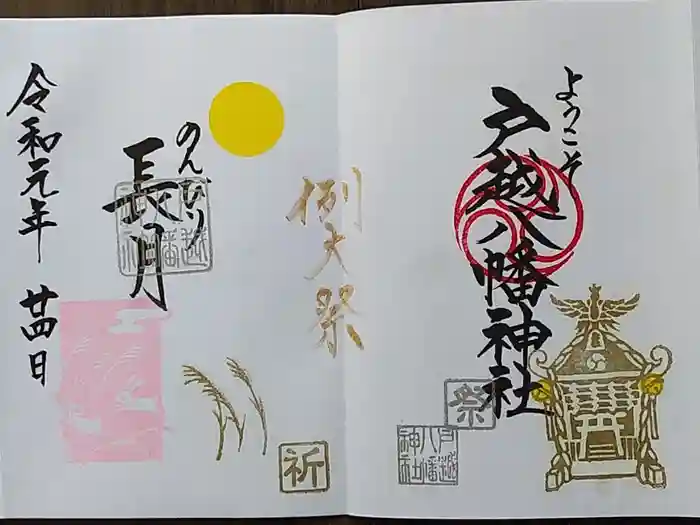 ようこそ
戸越八幡神社
祭
戸越八幡神社
例大祭
のんびり
長月
戸越八幡神社
祈
令和元年
廿四日